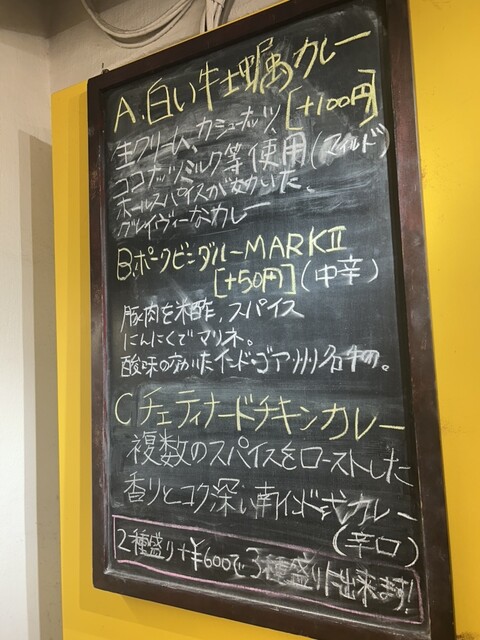 A.白い牡蠣カレー
[+100円]
生クリーム、カシューナッツ、
ココナッツミルク等使用(マイルド)
ホールスパイスが効いた、
グレイヴィーなカレー
B.ポークビンダルーMARKⅡ
[+50円](中辛)
豚肉を米酢、スパイス
にんにくでマリネ。
酸味の効いたインド・ゴア州名物。
C チェティナードチキンカレー
複数のスパイスをローストした
香りとコク深い南インド式カレー
(辛口)
2種盛り+¥600で3種盛りに出来ます!